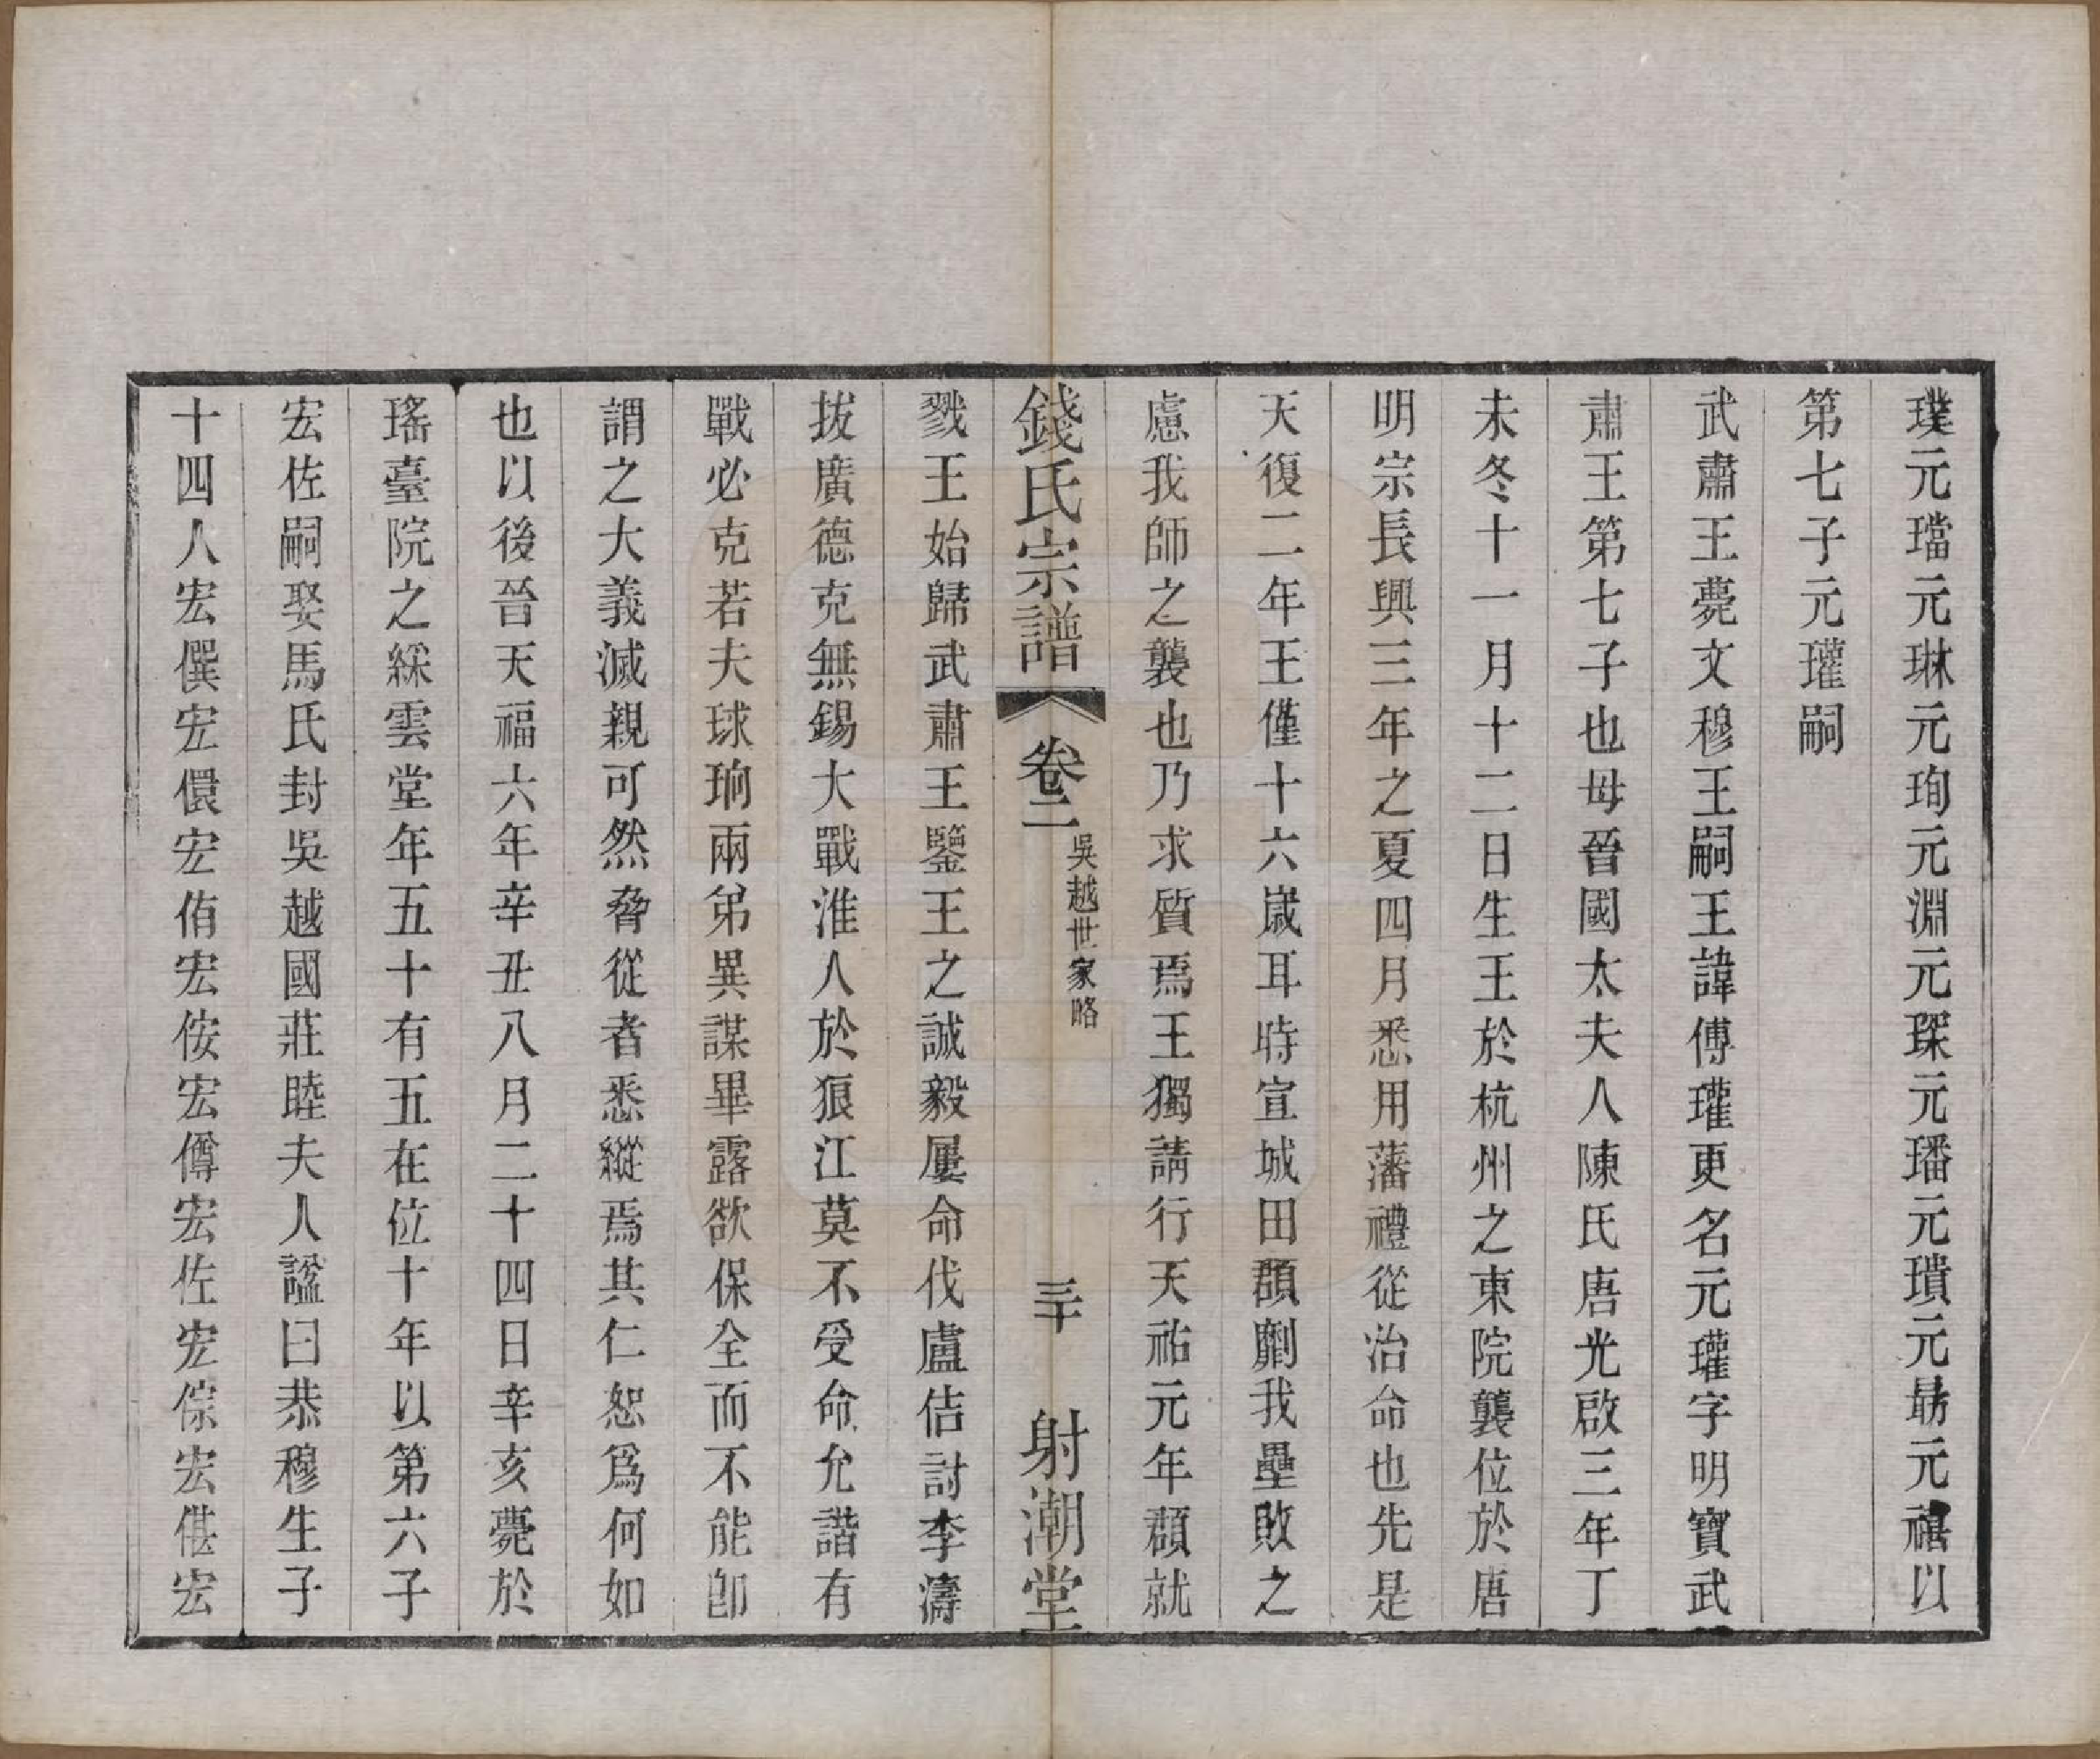 璞元璫元琳元珣元淵元琛元璠元璝元勗元禧以
第七子元瓘嗣
武肅王薨文穆王嗣王諱傅瓘更名元瓘字明寶武
肅王第七子也母晉國太夫人陳氏唐光啟三年丁
未冬十一月十二日生王於杭州之東院襲位於唐
明宗長興三年之夏四月悉用藩禮從治命也先是
天復二年王僅十六歲耳時宣城田頵劘我壘敗之
慮我師之襲也乃求質焉王獨請行天祐元年頵就
錢氏宗譜 卷二 吳越世家略 三十 射潮堂
戮王始歸武肅王鑒王之誠毅屢命伐盧佶討李濤
拔廣德克無錫大戰淮人於狼江莫不受命允諧有
戰必克若夫球珦兩弟異謀畢露欲保全而不能卽
謂之大義滅親可然脅從者悉縱焉其仁恕爲何如
也以後晉天福六年辛丑八月二十四日辛亥薨於
瑤臺院之綵雲堂年五十有五在位十年以第六子
宏佐嗣娶馬氏封吳越國莊睦夫人謚曰恭穆生子
十四人宏僎宏儇宏侑宏侒宏僔宏佐宏倧宏偡宏